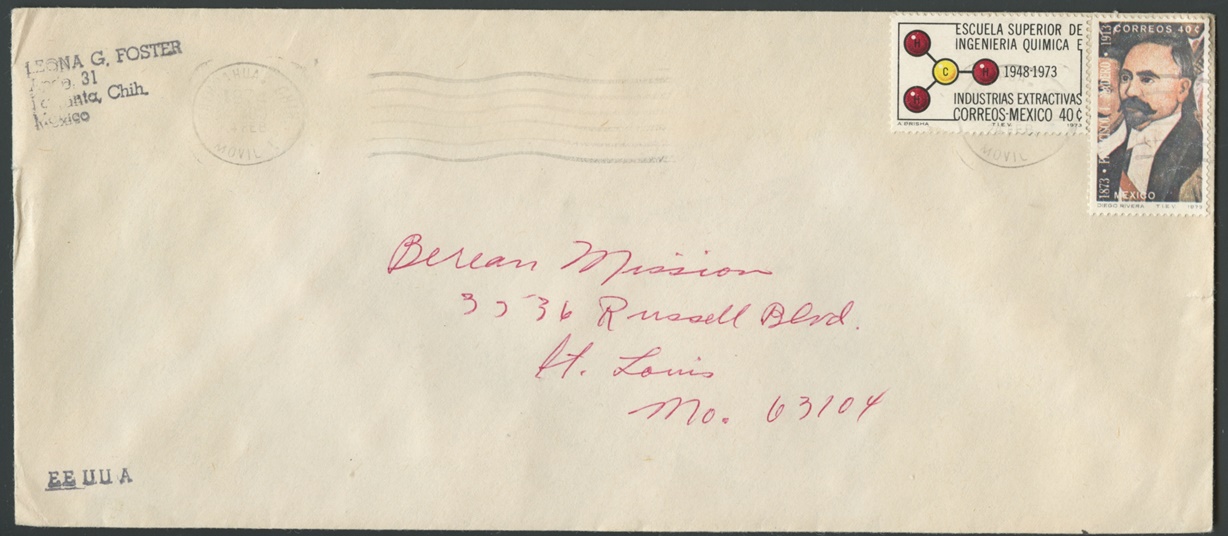 LEONA G. FOSTER
31
Chih.
Mexico
MOVIL
ESCUELA SUPERIOR DE
INGENIERIA QUIMICA E
H
C H 1948-1973
H
INDUSTRIAS EXTRACTIVAS
CORREOS-MEXICO 40¢
T.I.E.V. 1973
CORREOS 40¢
1873 • 1913
MEXICO
DIEGO RIVERA T.I.E.V. 1973
MOVIL
Berean Mission
3536 Russell Blvd.
St. Louis
Mo. 63104
EE UU A